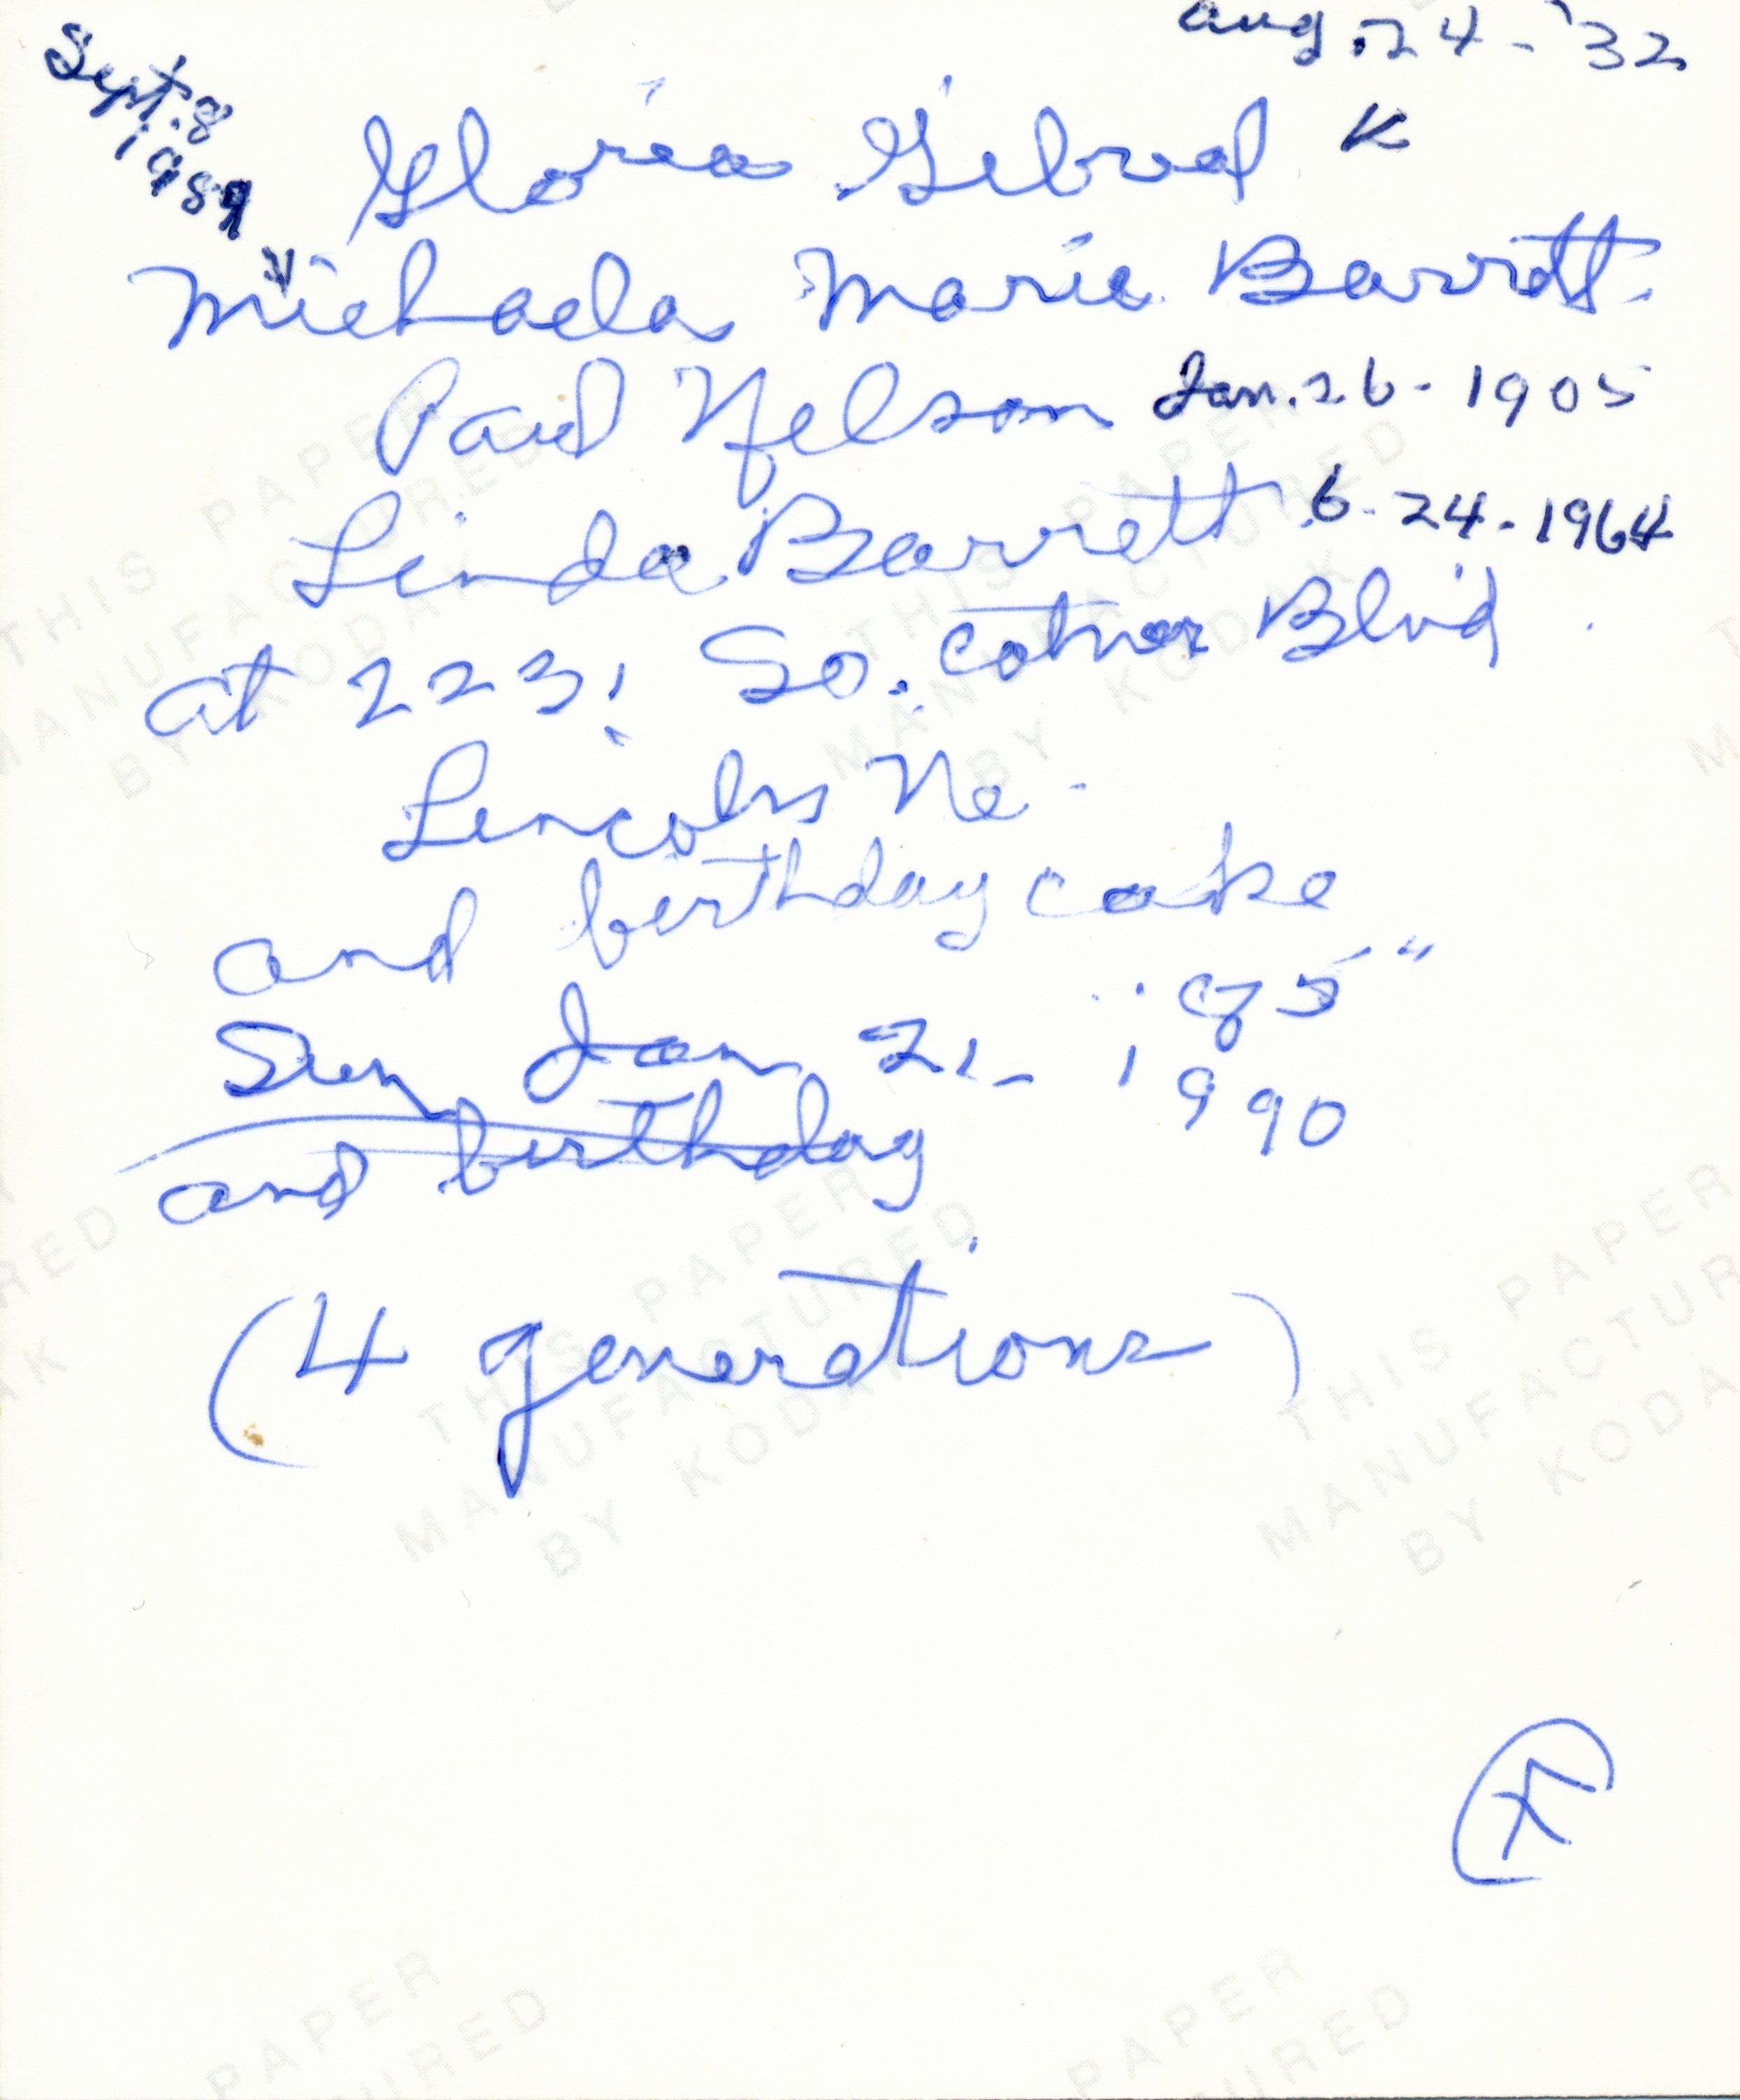 Aug. 24 - '32
Sept. 8
1989
Gloria Gebral K
Michaela Marie Barrett
Paul Nelson Jan. 26 - 1905
Linda Barrett 6-24-1964
at 2231 So. Cotner Blvd
Lincoln Ne.
and birthday cake
"85"
Sun Jan 21 - 1990
and birthday
(4 generations)
K
THIS PAPER
MANUFACTURED
BY KODAK